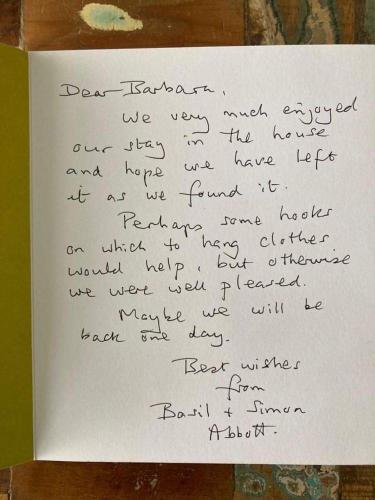 Dear Barbara,
We very much enjoyed
our stay in the house
and hope we have left
it as we found it.
Perhaps some hooks
on which to hang clothes
would help, but otherwise
we were well pleased.
Maybe we will be
back one day.
Best wishes
from
Basil + Simon
Abbott.